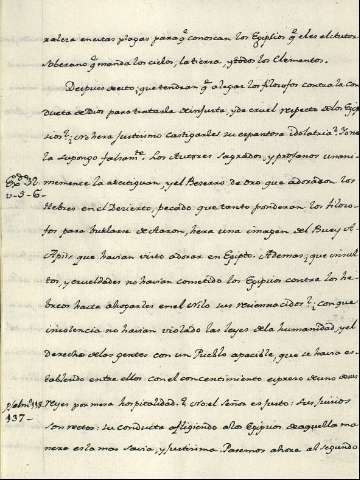 en estas plagas para q conoscan los Egipcios q el es el
Soberano q manda los cielos, la tierra, y todos los Elementos.
Despues de esto, que tendran q alegar los filosofos contra la con
ducta de Dios para tratarla de injusta, y de cruel respecto de los Egip
cios? No hera justisimo castigarles su espantosa idolatria?
la supongo falsamte. Los Autores sagrados, y profanos unani
memente la atestiguan, y el Becerro de oro que adoraron los
Exo. 32.
v-5-6-
Hebreos en el Desierto, pecado que tanto ponderan los filoso-
fos para burlarse de Aaron, hera una imagen del Buey A-
Apis que havian visto adorar en Egipto. Ademas; que insul
tos, y crueldades no havian cometido los Egipcios contra los he-
breos hasta ahogarles en el Nilo sus reciennacidos? con que
insolencia no havian violado las leyes de la humanidad, y el
derecho de las gentes con un Pueblo apacible, que se havia es-
tablecido entre ellos con el consentimiento expreso de uno de sus
Psalmo 118.
137-
reyes por mera hospitalidad? el Señor es justo: sus juicios
son rectos: su conducta afligiendo a los Egipcios de aquella ma
nera es la mas savia, y justisima. Pasemos ahora al segundo